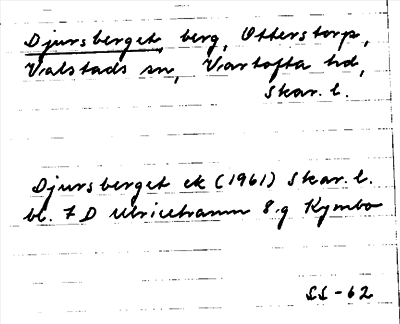 Djursberget, berg, Otterstorp,
Valstads sn, Vartofta hd,
Skar. l.
Djursberget ek (1961) Skar. l.
bl. 7 D Ulricehamn 8.g Kymbo
SS-62